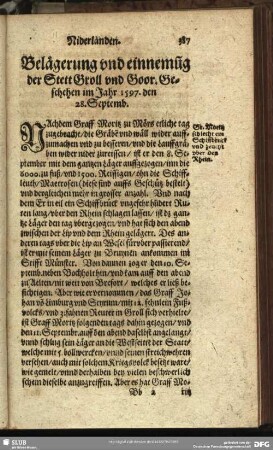 Niderlanden. 587
Belägerung vnd einnemüg
der Stett Groll vnd Goor. Ge-
schehen im Jahr 1597. den
28. Septemb.
NAchdem Graff Moritz zu Mörs etliche tag
zugebracht / die Gräbẽ vnd wäll wider auff-
zumachen vnd zu bessern / vnd die Lauffgrä-
ben wider nider zureissen / ist er den 8. Se-
ptember mit dem gantzen Läger auffgezogen / mit die
6000. zu fuß / vnd 1500. Reissigen / ohn die Schiff-
leuth / Maeroesen (diese sind auffs Geschütz bestelt)
vnd dergleichen mehr in grosser anzahl. Vnd nach
dem Er in eil ein Schiffbrück vngefehr hũdert Ru-
ten lang / vber den Rhein schlagen lassen / ist dz gan-
tze Läger den tag vbergezogen / vnd hat sich den abend
zwischet der Lip vnd dem Rhein gelägert. Des an-
deren tags vber die Lip zu Wesel fürvber passierend /
ist er mit seinem Läger zu Brunen ankommen im
Stifft Münster. Von dannen zog er den 10. Se-
ptemb. neben Bocholt hin / vnd kam auff den abend
zu Aelten / nit weit von Brefort / welches er ließ be-
sichtigen. Aber wie er vernommen / das Graff Jo-
han võ Limburg vnd Stirum / mit 12. fehnlen Fuß-
volcks / vnd 3. fahnen Reuter in Groll sich verhielte /
ist Graff Moritz folgenden tags dahin gezogen / vnd
den 11. Septemb. auff den abend daselbst angelangt /
vnnd schlug sein Läger an die Westseitet der Statt /
welche mit 5. bollwercken / vnnd seinen streichwehren
versehen / auch mit solchem Kriegsvolck besetzt ware /
wie gemelt / vnnd derhalben bey vielen beschwerlich
schien dieselbe anzugreiffen. Aber es hat Graff Mo-
Bb 2
Gr. Moritz
schlecht ein
Schiffbrück
vnd zeucht
vber den
Rhein.
SLUB